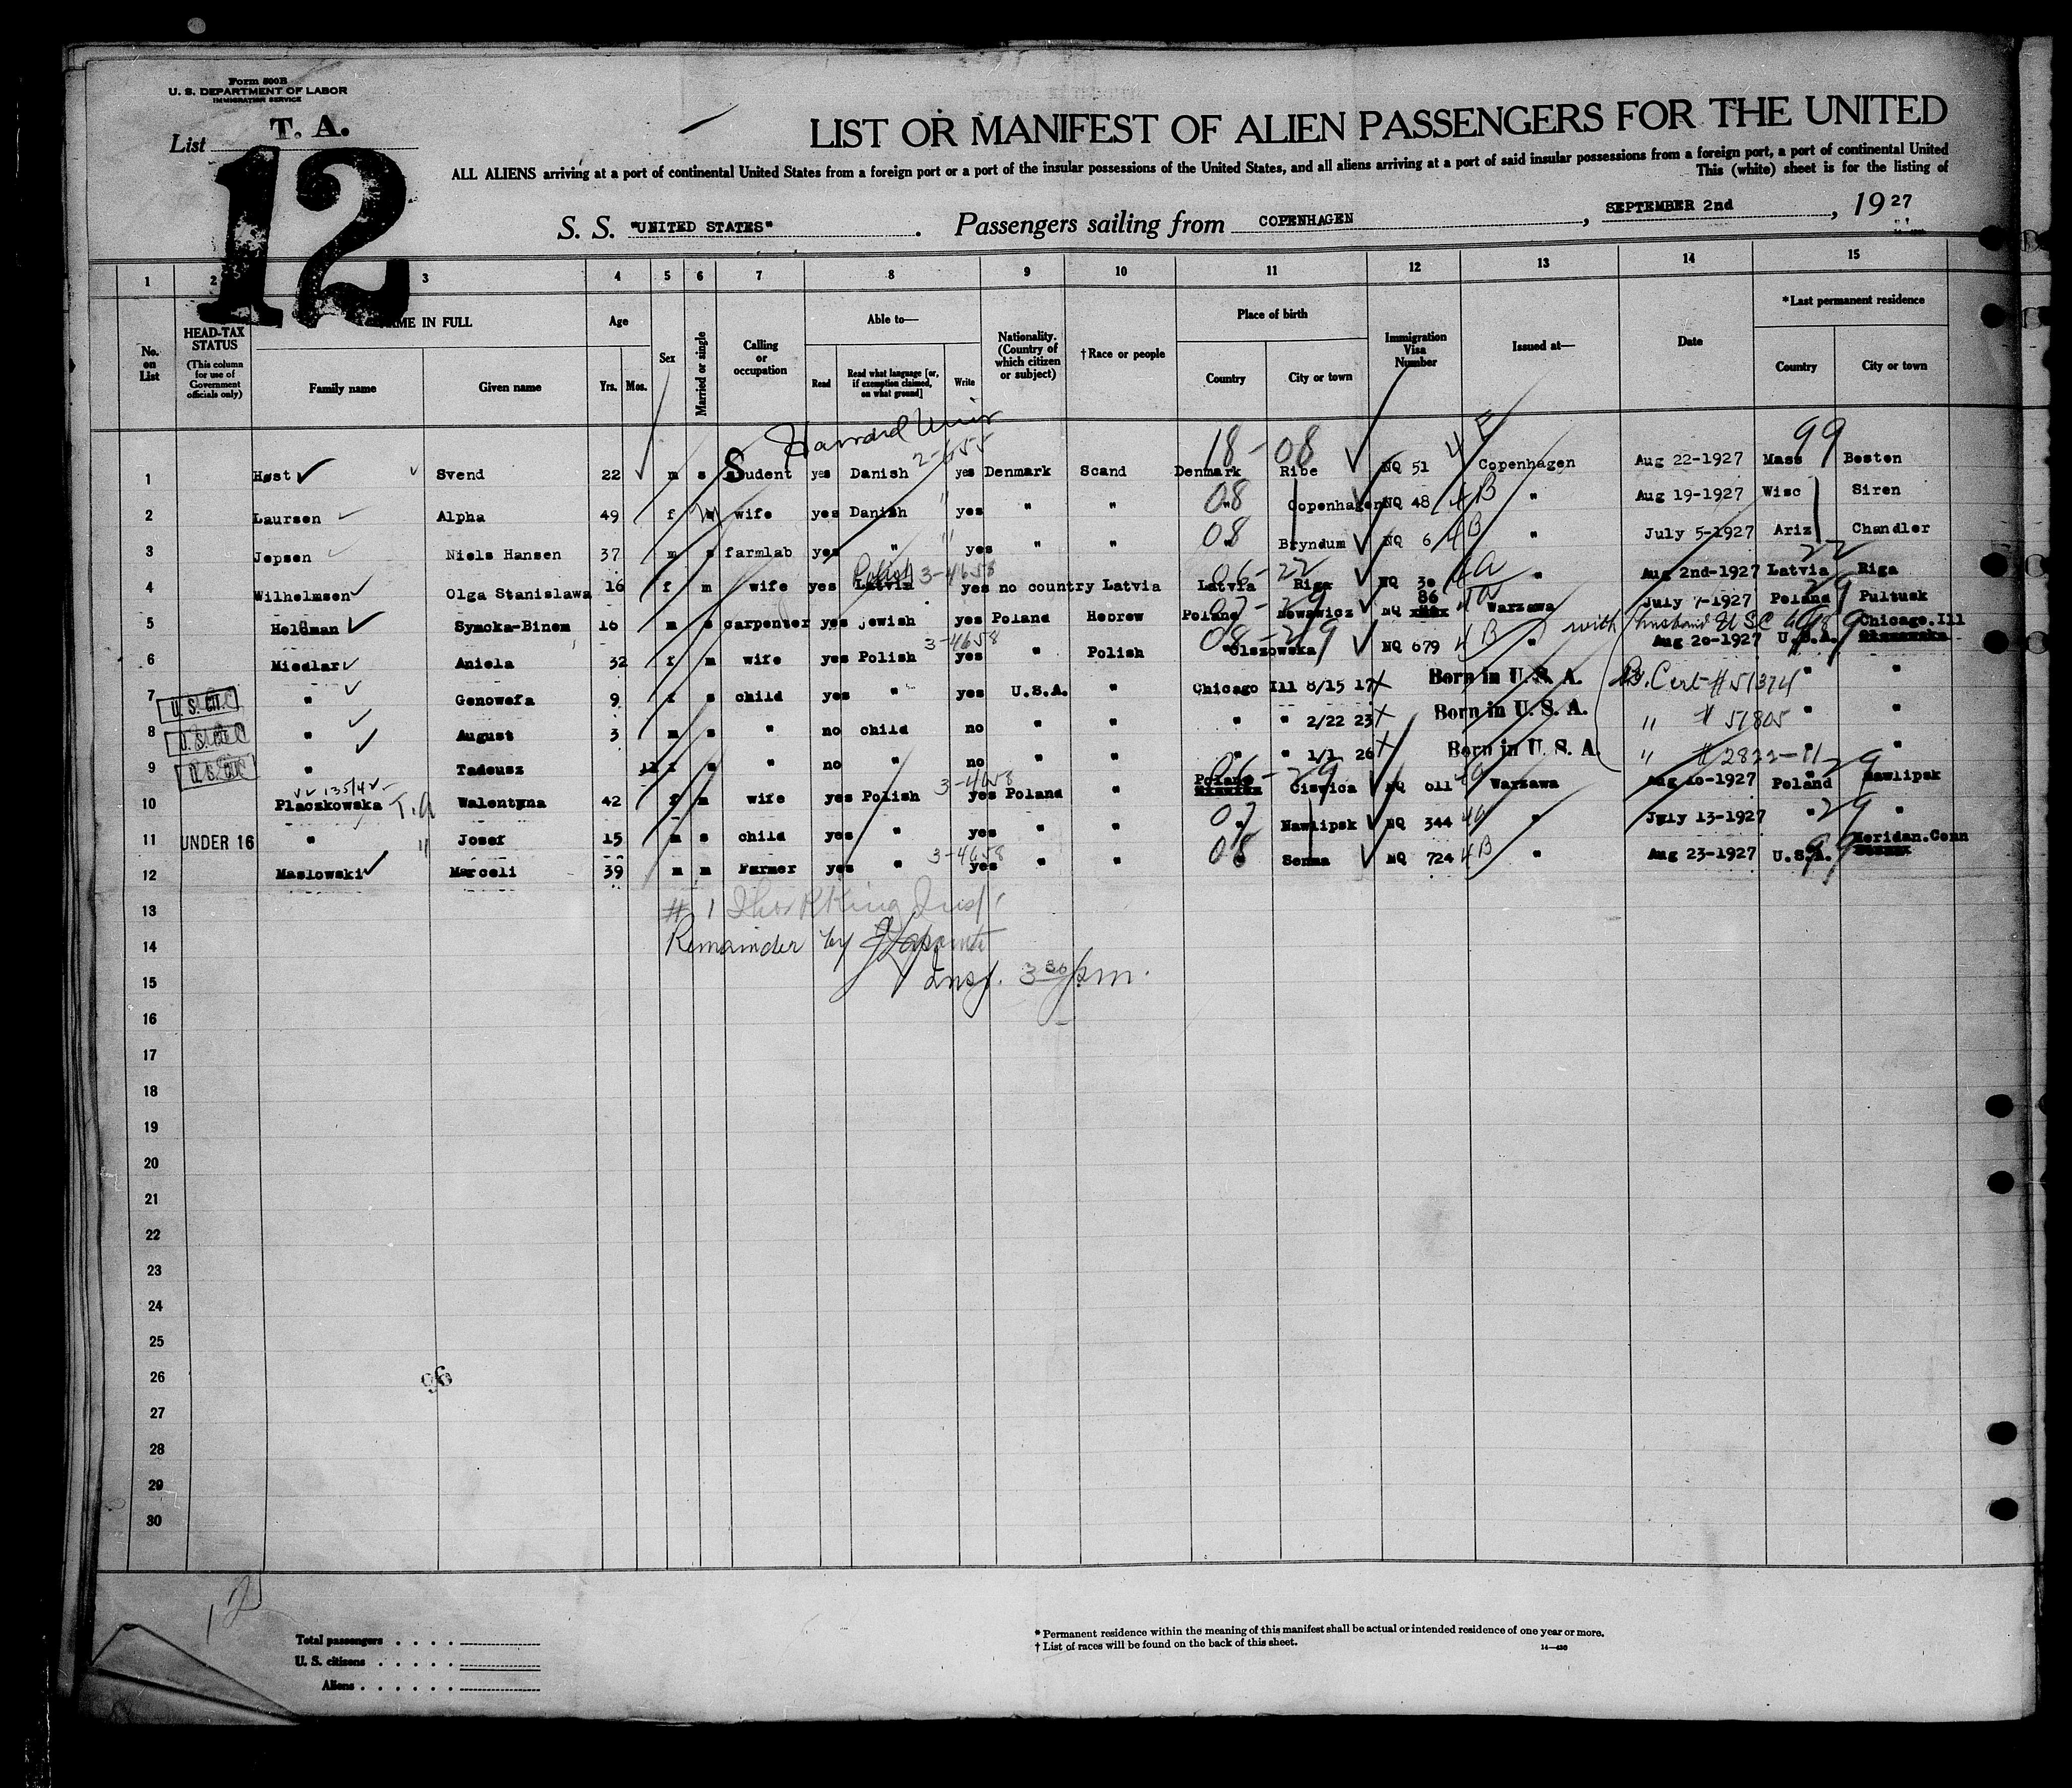 Form 500B
U. S. DEPARTMENT OF LABOR
IMMIGRATION SERVICE
List T. A.
12
LIST OR MANIFEST OF ALIEN PASSENGERS FOR THE UNITED
ALL ALIENS arriving at a port of continental United States from a foreign port or a port of the insular possessions of the United States, and all aliens arriving at a port of said insular possessions from a foreign port, a port of continental United
This (white) sheet is for the listing of
S. S. "UNITED STATES" . Passengers sailing from COPENHAGEN , SEPTEMBER 2nd , 19 27
1 2 3 4 5 6 7 8 9 10 11 12 13 14 15
No. on List
HEAD-TAX STATUS (This column for use of Government officials only)
NAME IN FULL Family name Given name
Age Yrs. Mos.
Sex
Married or single
Calling or occupation
Able to— Read Read what language [or, if exemption claimed, on what ground] Write
Nationality. (Country of which citizen or subject)
†Race or people
Place of birth Country City or town
Immigration Visa Number
Issued at—
Date
*Last permanent residence Country City or town
Harvard Univ 2-655 18-08 4E 99
1 Høst Svend 22 m s Student yes Danish yes Denmark Scand Denmark Ribe NQ 51 Copenhagen Aug 22-1927 Mass Boston
2 Laursen Alpha 49 f wife yes Danish " yes " " 08 " Copenhagen NQ 48 4B " Aug 19-1927 Wisc Siren
3 Jepsen Niels Hansen 37 m s farmlab yes " " yes " " 08 Bryndum NQ 6 4B " July 5-1927 Ariz Chandler
4 Wilhelmsen Olga Stanislawa 16 f m wife yes Polish Latvia 3-4658 yes no country Latvia Latvia 06-22 Riga NQ 30 4a " Aug 2nd-1927 Latvia 22 Riga
5 Heldman Symcka-Binem 16 m s carpenter yes jewish yes Poland Hebrew Poland NQ 86 Warzawa July 7-1927 Poland 29 Pultusk
with husband
6 Miedlar Aniela 32 f m wife yes Polish 3-4658 yes " Polish 08-29 " Olszowska NQ 679 4B " Aug 20-1927 U.S.A. Chicago.Ill
7 U. S. CIT. " Genowefa 9 f s child yes " yes U.S.A. " Chicago Ill 8/15 17 X Born in U. S. A. B. Cert # 51374 " "
8 U. S. CIT. " August 3 m s " no child no " " " " 2/22 23 X Born in U. S. A. " # 51805 " "
9 U. S. CIT. " Tadeusz 11 " no " no " " " " 1/1 26 X Born in U. S. A. " # 2822-11 " "
10 Placzkowska T.a Walentyna 42 f m wife yes Polish 3-4658 yes Poland " Poland 06-29 Ciswica NQ 611 4a Warzawa Aug 10-1927 Poland 29 Nawlipsk
11 UNDER 16 " " Josef 15 m s child yes " yes " " 07 " Nawlipsk NQ 344 4a " July 13-1927 " 29 "
12 Maslowski Marceli 39 m m Farmer yes " 3-4658 yes " " 08 Senma NQ 724 4B " Aug 23-1927 U.S.A. 99 Meridan.Conn
13 # 1 King Insp.
14 Remainder by
15 Insp. 3 30 pm.
16
17
18
19
20
21
22
23
24
25
26 96
27
28
29
30
12
Total passengers . . . .
U. S. citizens . . . . .
Aliens . . . . . .
* Permanent residence within the meaning of this manifest shall be actual or intended residence of one year or more.
† List of races will be found on the back of this sheet.
14—430